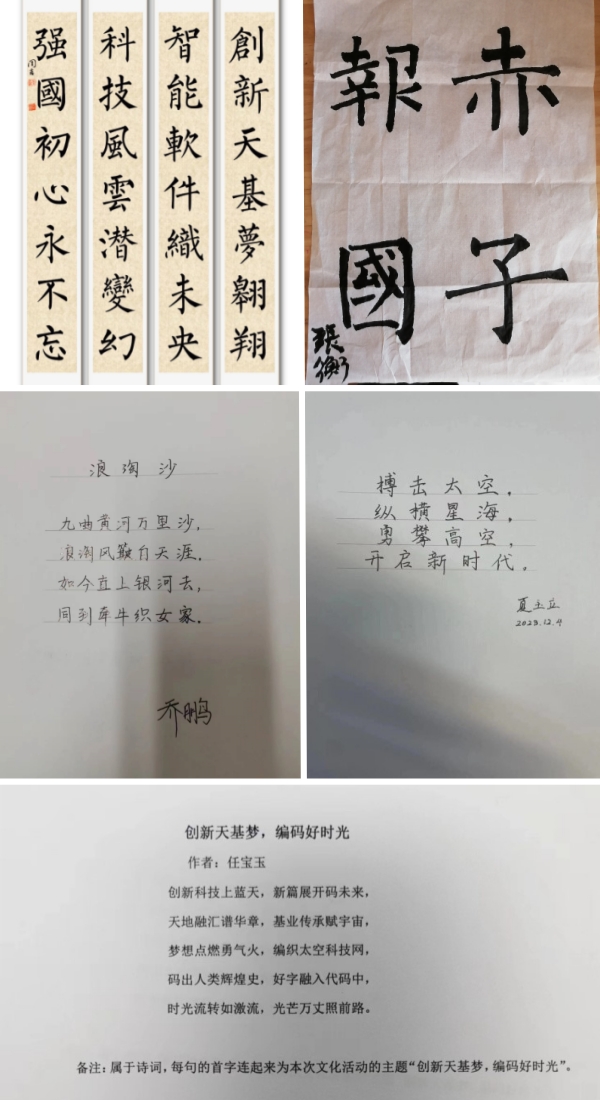 創新天基夢翱翔
智能軟件織未央
科技風雲潛變幻
强國初心永不忘
赤子
報國
張衡
浪淘沙
九曲黄河万里沙，
浪淘风簸自天涯。
如今直上银河去，
同到牵牛织女家。
乔鹏
搏击太空，
纵横星海，
勇攀高空，
开启新时代。
夏玉立
2023.12.4
创新天基梦，编码好时光
作者：任宝玉
创新科技上蓝天，新篇展开码未来，
天地融汇谱华章，基业传承赋宇宙，
梦想点燃勇气火，编织太空科技网，
码出人类辉煌史，好字融入代码中，
时光流转如激流，光芒万丈照前路。
备注：属于诗词，每句的首字连起来为本次文化活动的主题“创新天基梦，编码好时光”。